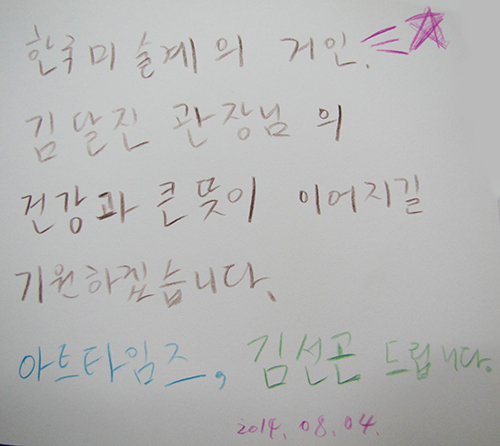 한국미술계의 거인.
김달진 관장님의
건강과 큰뜻이 이어지길
기원하겠습니다.
아트타임즈, 김선곤 드립니다.
2014. 08. 04.